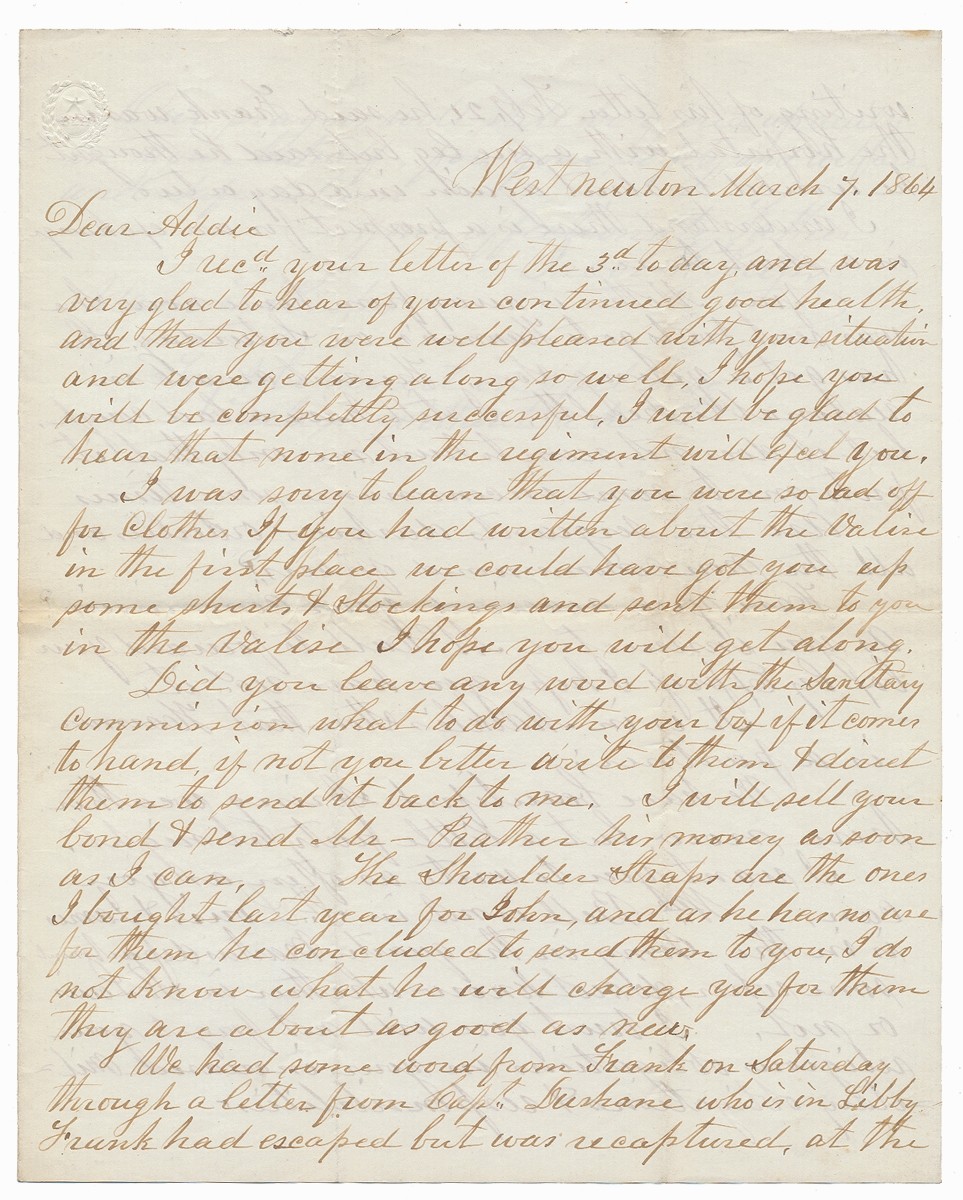 West Newton March 7. 1864
Dear Addie
I rec.d your letter of the 3.d today, and was
very glad to hear of your continued good health,
and that you were well pleased with your situation
and were getting along so well, I hope you
will be completely successful, I will be glad to
hear that none in the regiment will excel you.
I was sorry to learn that you were so bad off
for Clothes If you had written about the Valise
in the first place we could have got you up
some shirts & Stockings and sent them to you
in the Valise I hope you will get along.
Did you leave any word with the Sanitary
Commission what to do with your box if it comes
to hand, if not you better write to them & direct
them to send it back to me. I will sell your
bond & send Mr - Prather his money as soon
as I can, The Shoulder Straps are the ones
I bought last year for John, and as he has no use
for them he concluded to send them to you, I do
not know what he will charge you for them
they are about as good as new.
We had some word from Frank on Saturday
through a letter from Capt. Dushane who is in Libby
Frank had escaped but was recaptured, at the